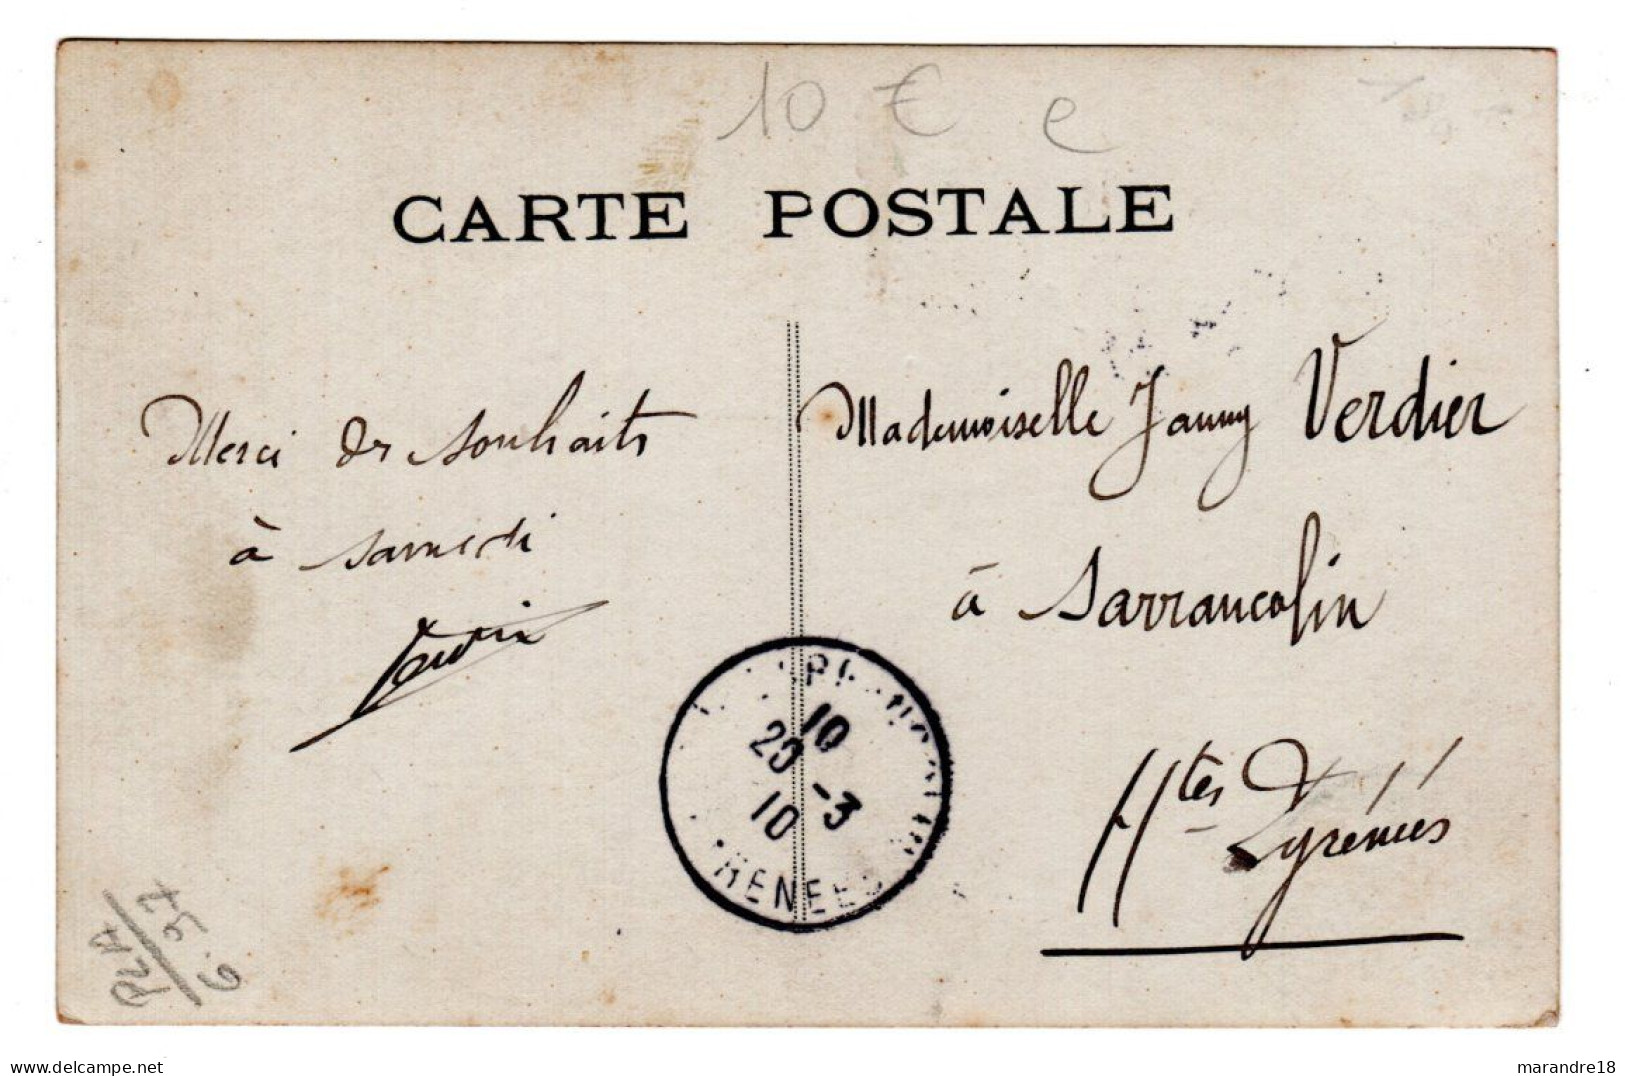 10 € e
CARTE POSTALE
Merci de souhaits
à samedi
Mademoiselle Janny Verdier
à Sarrancolin
Htes Pyrénées
10
23 -3
10
RENEES
www.delcampe.net
marandre18